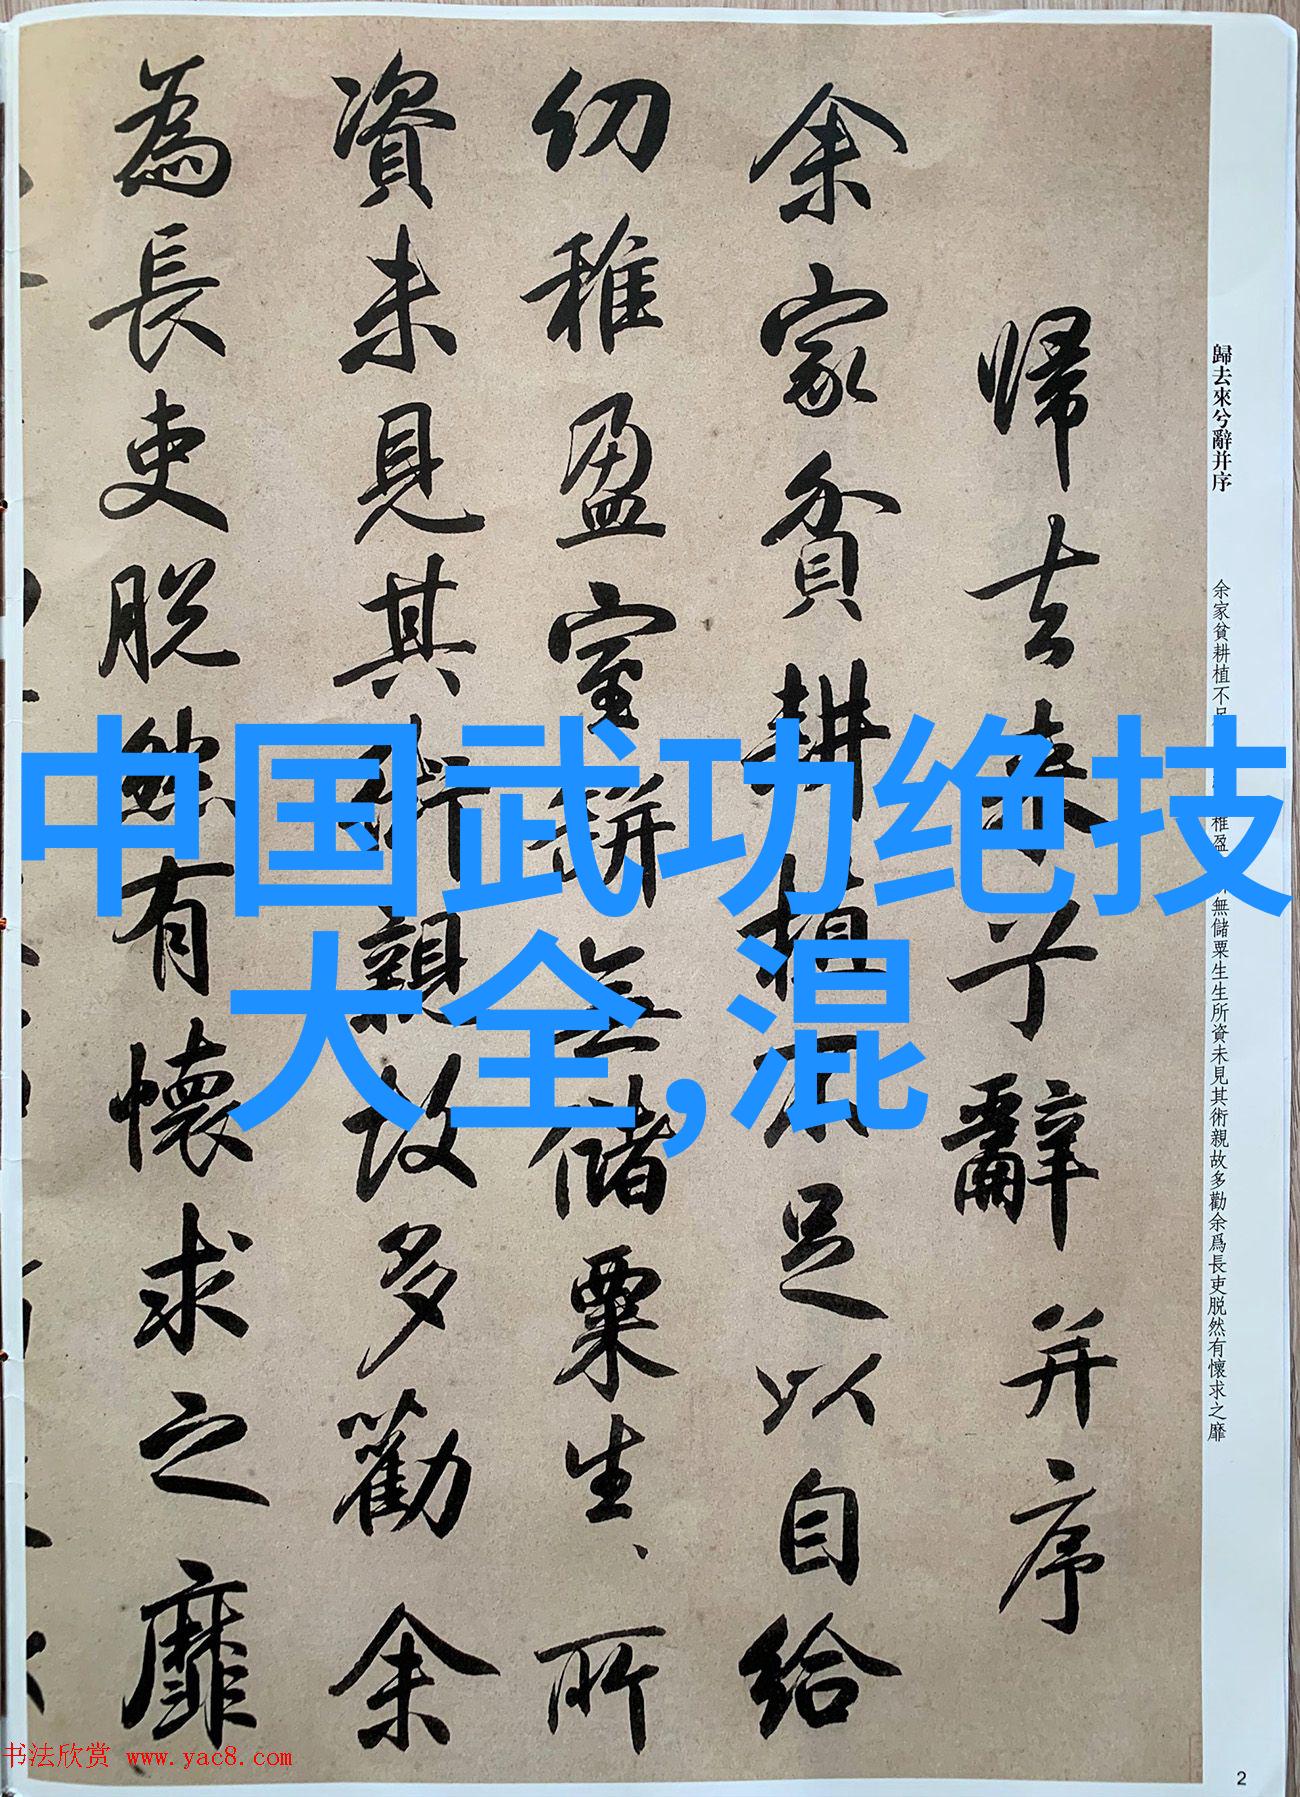 歸去来兮辭并序
余家貧耕植不足以自給
幼稚盈室缾無儲粟生生所
資未見其術親故多勸余
為長吏脱然有懷求之靡
歸去來兮辭并序
余家貧耕植不足
稚盈
無儲粟生生所資未見其術親故多勸余爲長吏脱然有懷求之靡
中国武功绝技
大全,混
书法欣赏 www.yac8.com
2